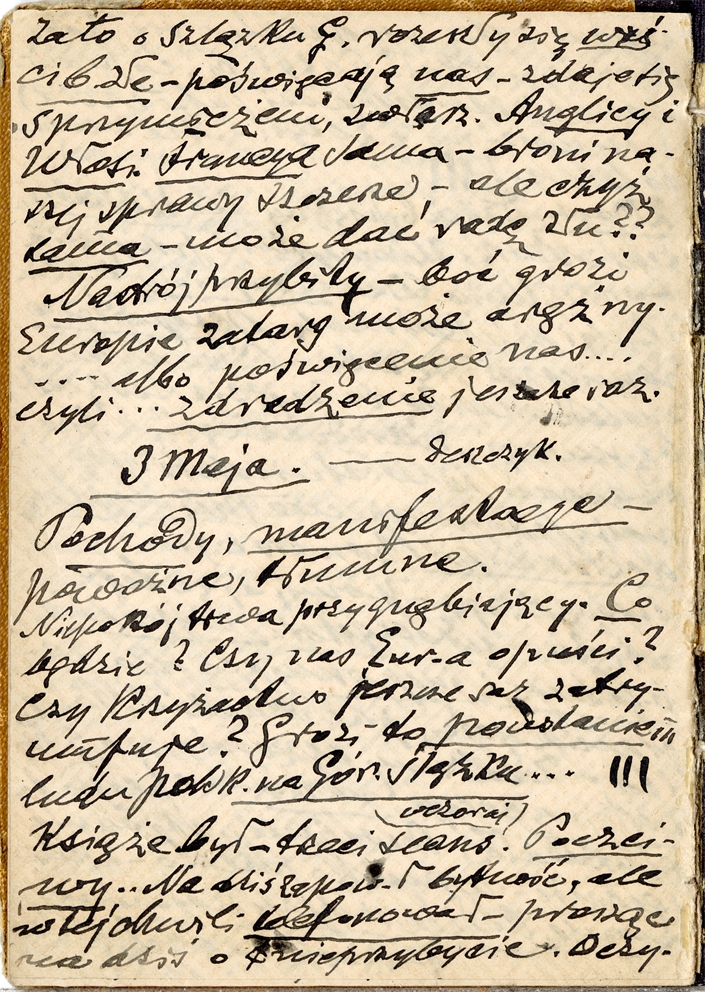 Zato o Szlązku G. rozeszły się wieś-
ci b złe – poświęcają nas – zdaje się
sprzymierzeni, zwłasz. Anglicy i
Włosi. Francya sama – broni na-
szej sprawy szczerze, – ale czyż
sama – może dać radę złu??
Nastrój przybity – boć grozi
Europie zatarg może orężny.
.... albo poświęcenie nas....
czyli... zdradzenie jeszcze raz.
3 Maja. — Deszczyk.
Pochody, manifestacye –
poważne, tłumne.
Niepokój trwa przygnębiający. Co
będzie? Czy nas Eur-a opuści?
Czy Krzyżactwo jeszcze raz zatry-
umfuje? Grozi to powstaniem
ludu polsk. na Gór. Śląsku... !!!
(wczoraj)
Książe był – trzeci seans. Poczci-
wy.. Na dziś zapow-ł bytność, ale
w tej chwili telefonował – prosząc
na dziś o nieprzybycie. Oczy-